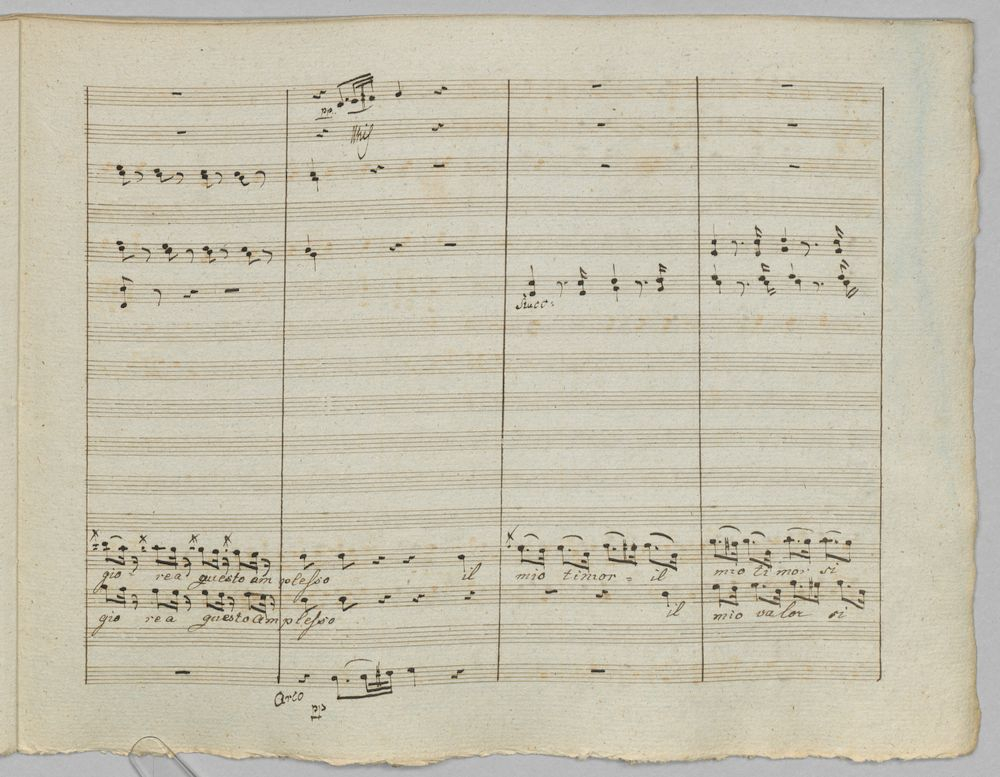 pp.
Unis
gio rea questo amplesso il mio timor = il mio timor si
gio rea questo amplesso il mio valor si
Arco